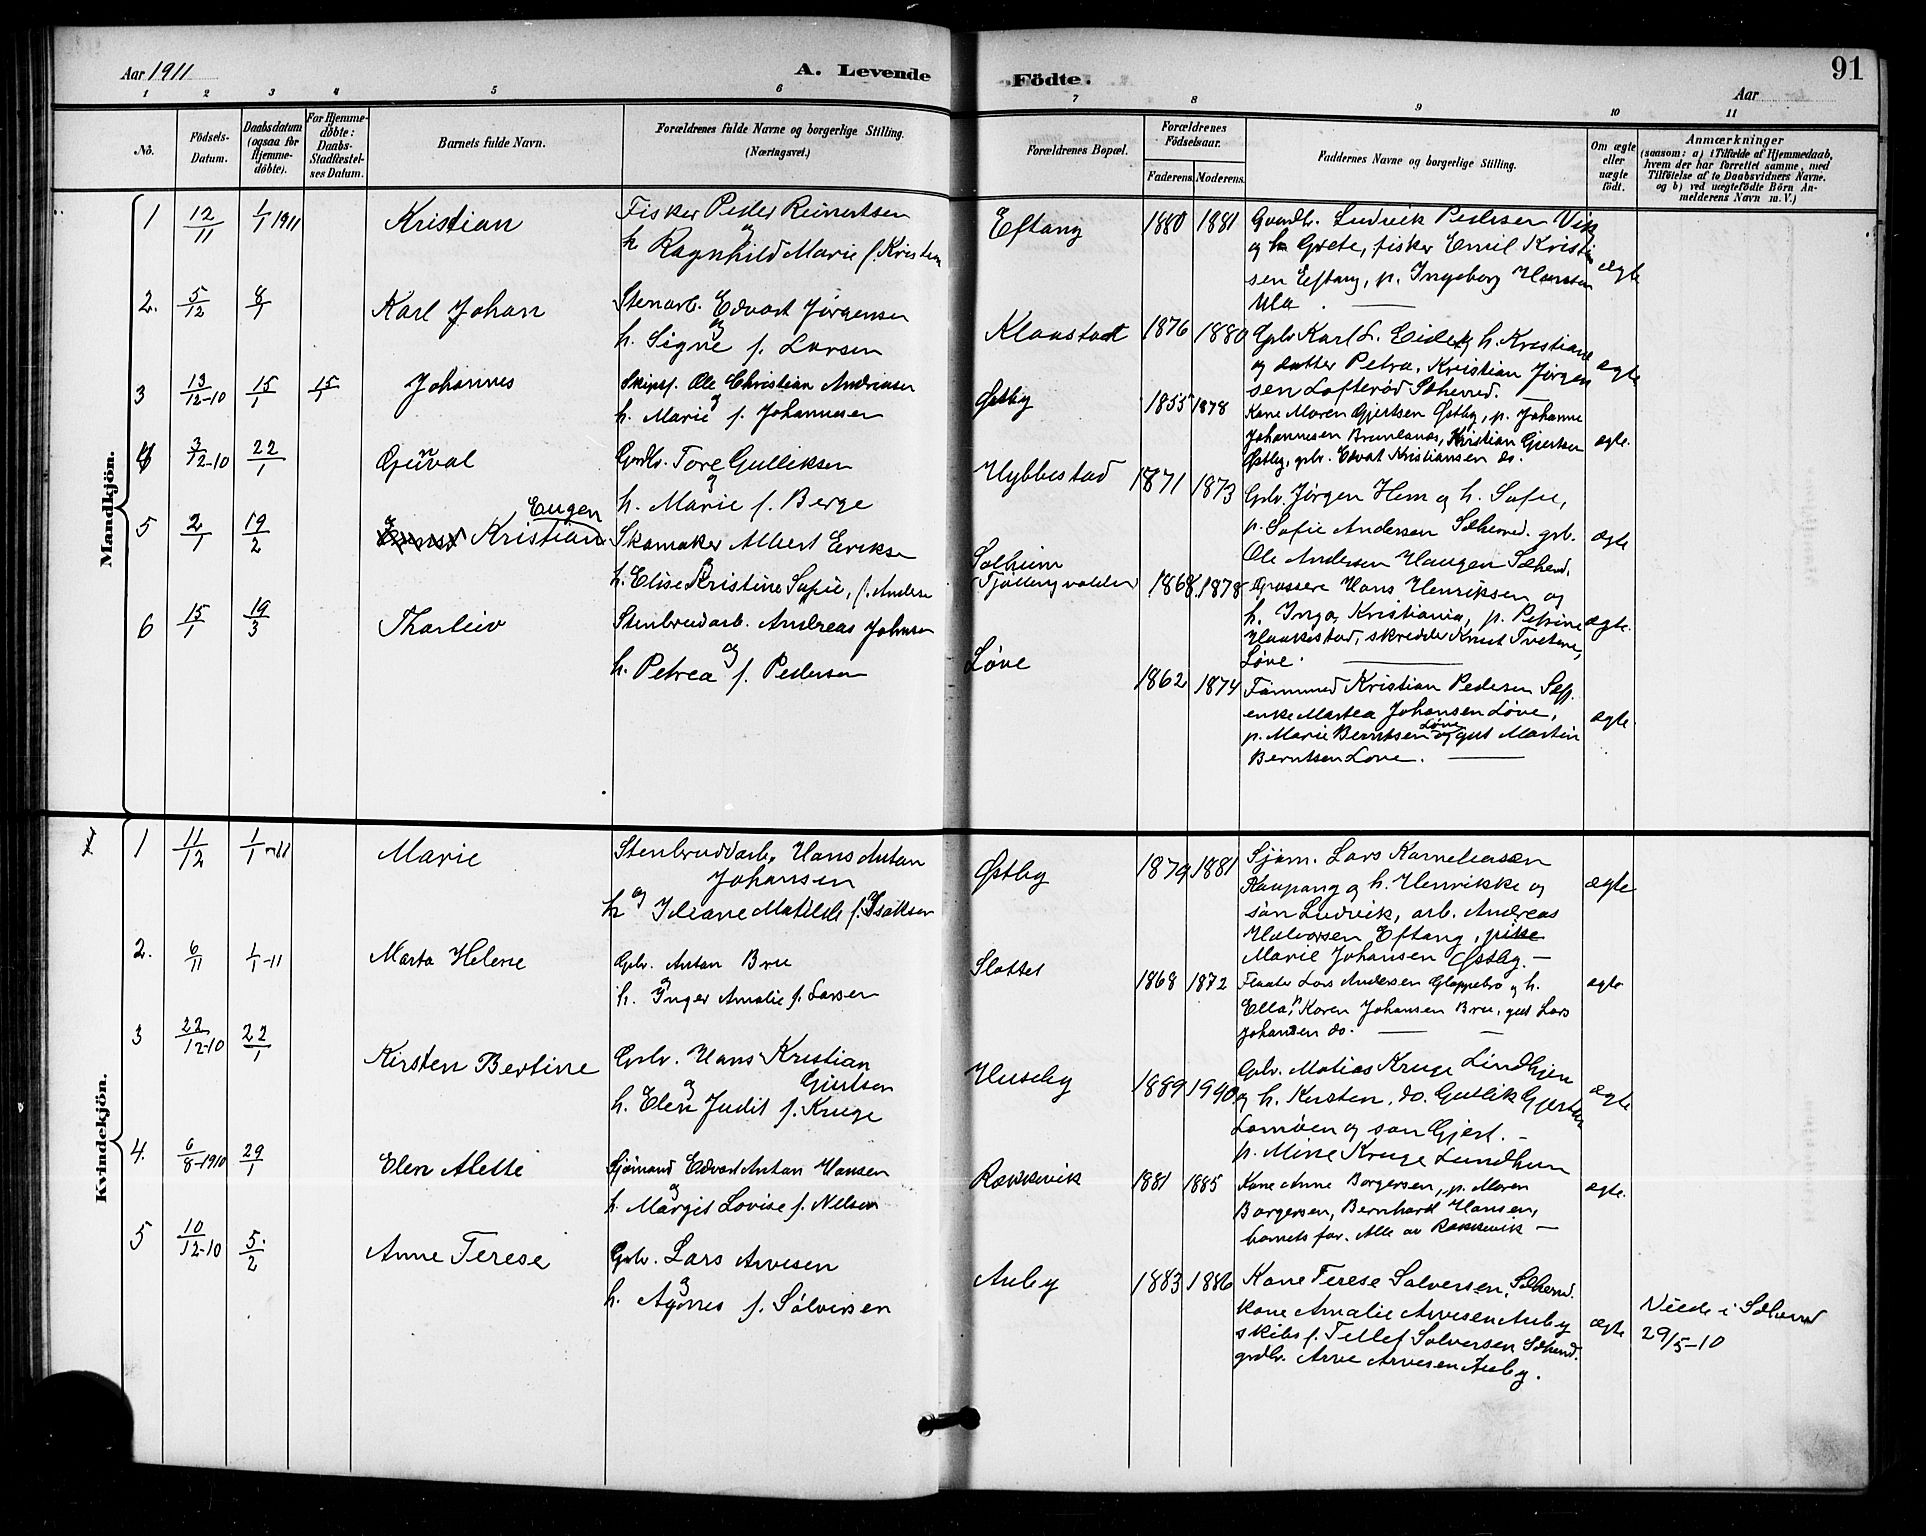 Aar 1911
A. Levende
Födte.
Aar
91
1 2 3 4 5 6 7 8 9 10 11
No.
Födsels-Datum.
Daabsdatum (ogsaa for Hjemmedöbte).
For Hjemmedøbte: Daabs-Stadfæstelses Datum.
Barnets fulde Navn.
Forældrenes fulde Navne og borgerlige Stilling.
(Næringsvei.)
Forældrenes Bopæl.
Forældrenes Födselsaar.
Faderens. Moderens.
Faddernes Navne og borgerlige Stilling.
Om ægte eller uægte födt.
Anmærkninger
(saasom: a) i Tilfælde af Hjemmedaab, hvem der har forrettet samme, med Tilföielse af to Daabsvidners Navne, og b) ved uægtefödte Börn Anmelderens Navn m. V.)
Mandkjön.
1 12/11 1/1 1911 Kristian
Fisker Peder Reinertsen
og
h Ragnhild Marie f. Kristen
Eftang 1880 1881
Gaardbr. Ludvik Pedersen Vik
og h Grete, fisker Emil Kristi
sen Eftang, p. Ingeborg Hansen
Ula
ægte
2. 5/12 8/1 Karl Johan
Stenarb. Edvart Jørgensen
og
h. Signe f. Larsen
Klaastadt 1876 1880
Gbr Karl L. Eide og h. Kristiane
og datter Petra, Kristian Jörgen
sen Lofterød Schered.
ægte
3 13/12-10 15/1 15/1 Johannes
Skipsf. Ole Christian Andreasen
og
h. Marie f. Johannesen
Østby 1855 1878
Kone Maren Gjertsen Østby, p. Johanne
Johannesen Brunlanæs, Kristian Gjertsen
Østby, gbr. Edvat Kristiansen do.
ægte.
4 3/12-10 22/1 Gunval
Grdb. Tore Gulliksen
og
h. Marie f. Berge
Hybbestad 1871 1873
Gbr. Jørgen Hem og h. Sofie,
p. Sofie Andersen Schered. grb.
Ole Andersen Haugen Schered.
ægte
5 2/1 19/2 Eugen Kristian
Skomaker Albert Erikse
og
h. Elise Kristine Sofie, f. Anderse
Solheim
(Tjöllingvolden) 1868. 1878
Grossere Hans Henriksen og
h. Inga Kristiania, p. Petrine
Haakestad, skredder Knut Tvetene,
Løve.
ægte.
6 15/1 19/3 Tharleiv
Stenbrudarb. Andreas Johnsen
og
h. Petrea f. Pedersen
Løve 1862 1874
Tømmermd Kristian Pedersen
enke Martea Johansen Løve,
p. Marie Berntsen Løve og gut Martin
Berntsen Løve.
ægte.
Kvindekjön.
1 11/12 1/1-11 Marie
Stenbruddarb. Hans Antan
Johansen
og
h Idiane Matilde f. Isaksen
Østby 1879 1881
Sjøm. Lars Karneliussen
Kaupang og h. Henrikke og
søn Ludvik, arb. Andreas
Halvorsen Eftang, pike
Marie Johansen Østby. —
ægte
2. 6/11 1/1-11 Marta Helene
Gbr. Antan Bru
og
h. Inger Amalie f. Larsen
Slottet 1868 1872
Lars Andersen Gloppebro og h.
Ella, Karen Johansen Bru, gut Lars
Johansen do. —
ægte
3 22/12-10 22/1 Kirsten Bertine
Gbr. Hans Kristian
Gjertsen
og
h. Elen Judit f. Kruge
Huseby 1889 1940
Gbr. Matias Kruge Lindhjem
og h. Kirsten, do. Gutlik Gjertsen
Lamøen og søn Gjert. —
p. Mine Kruge Lundhem
ægte
4. 6/8-1910 29/1 Elen Alette
Sjømand Edvart Antan Hansen
og
h. Margit Lovise f. Nilsen
Rakkevik 1881 1885
Kone Anne Borgersen, p. Maren
Borgersen, Bernhard Hansen,
barnets far. Alle av Rakkevik —
ægte.
5 10/12-10 5/2 Anne Terese
Gbr. Lars Arvesen
og
h. Agnes f. Sølversen
Auby 1883 1886
Kone Terese Salversen, Schered.
kone Amalie Arvesen Auby
skibsf. Tellef Salversen Schered.
grdbr. Arve Arvesen Auby.
ægte
Viede i Schered
29/5-10